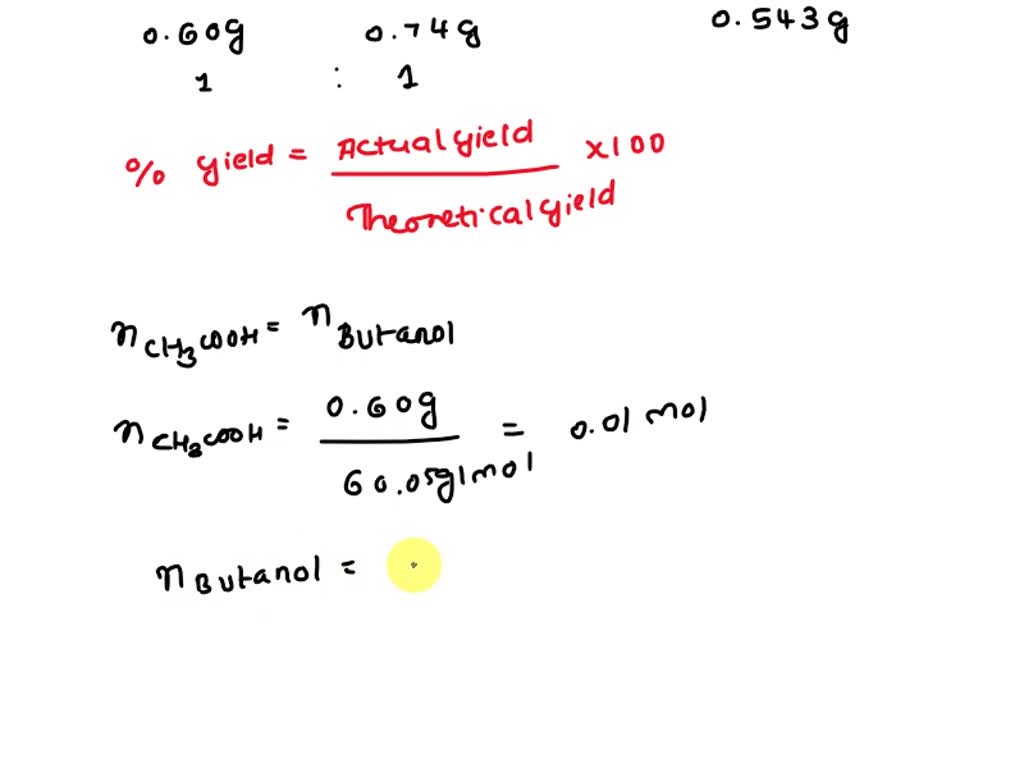 0.60g 0.74g 0.543g
1 : 1
% yield = Actual yield / Theoretical yield x100
n CH3COOH = n Butanol
n CH3COOH = 0.60g / 60.05g/mol = 0.01 mol
n Butanol =